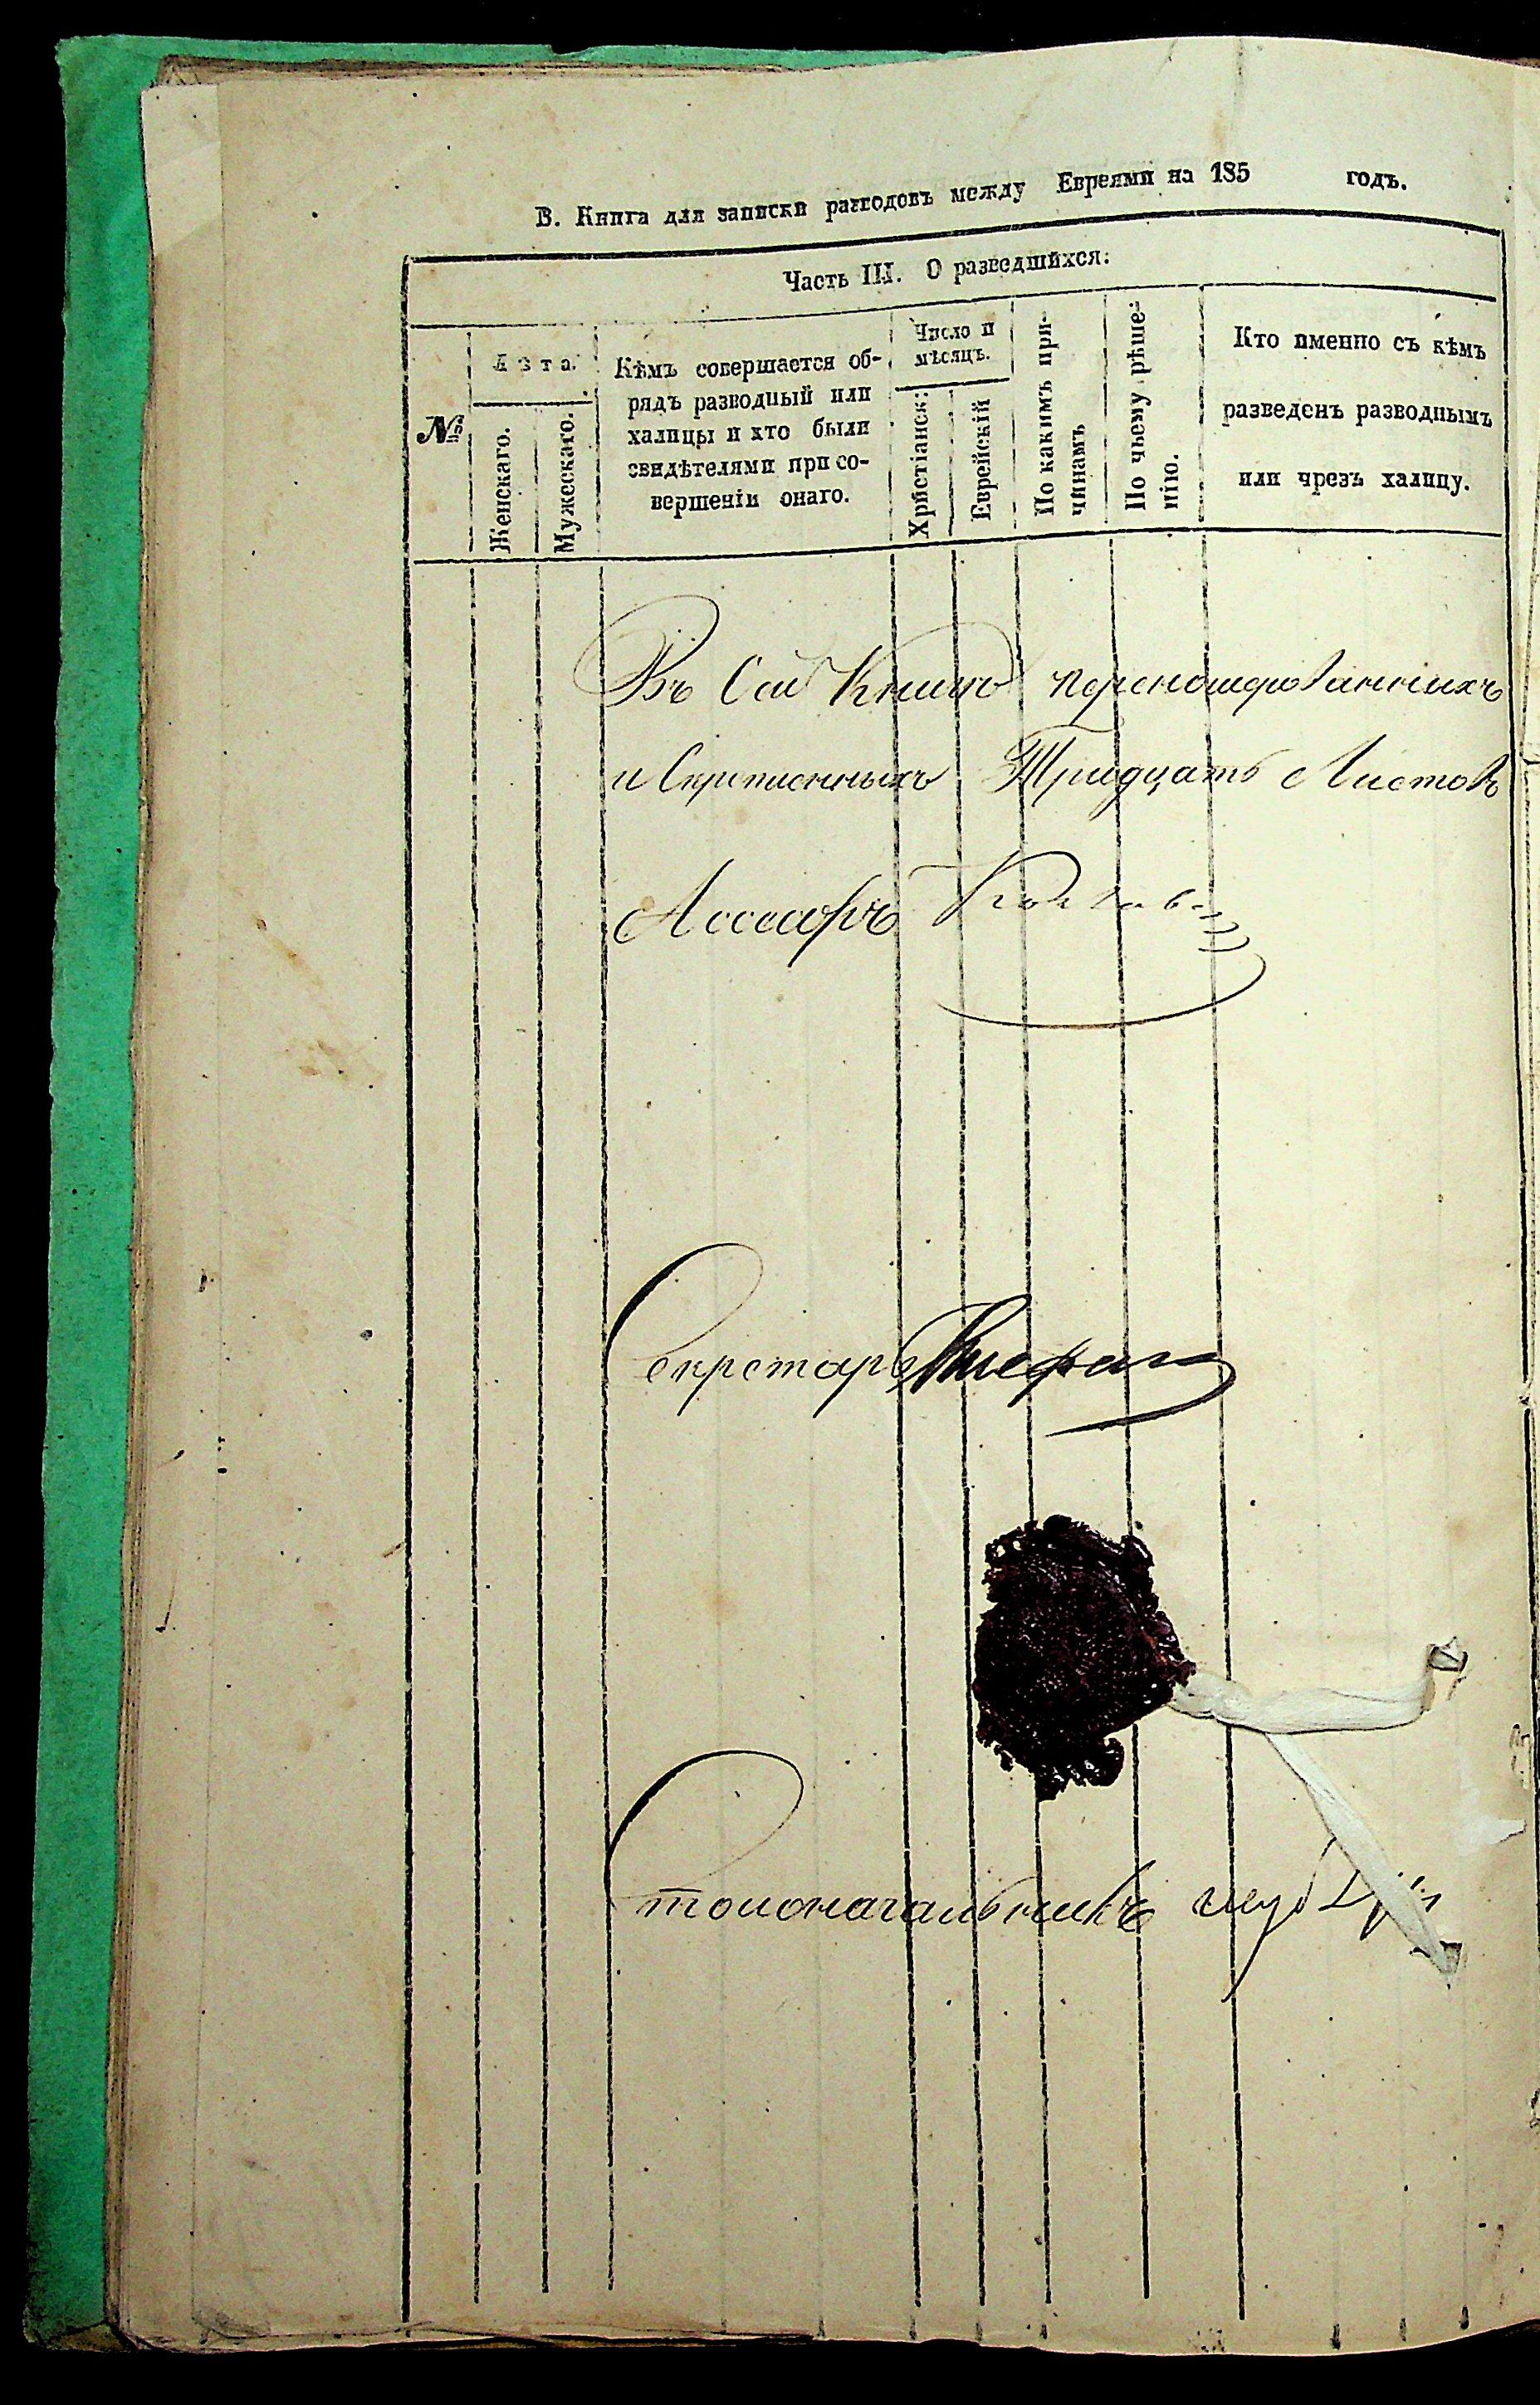 В. Книга для записки разводовъ между Евреями на 185 годъ.
Часть III. О разведшихся:
№
Лѣта.
Женскаго.
Мужескаго.
Кѣмъ совершается об-
рядъ разводный или
халицы и кто были
свидѣтелями при со-
вершеніи онаго.
Число и
мѣсяцъ.
Христіанск:
Еврейскій
По какимъ при-
чинамъ
По чьему рѣше-
нію.
Кто именно съ кѣмъ
разведенъ разводнымъ
или чрезъ халицу.
Въ Сей Книгѣ переномерованныхъ
и Скрѣпленныхъ Тридцать Листовъ
Ассесоръ
Секретарь
Столоначальникъ